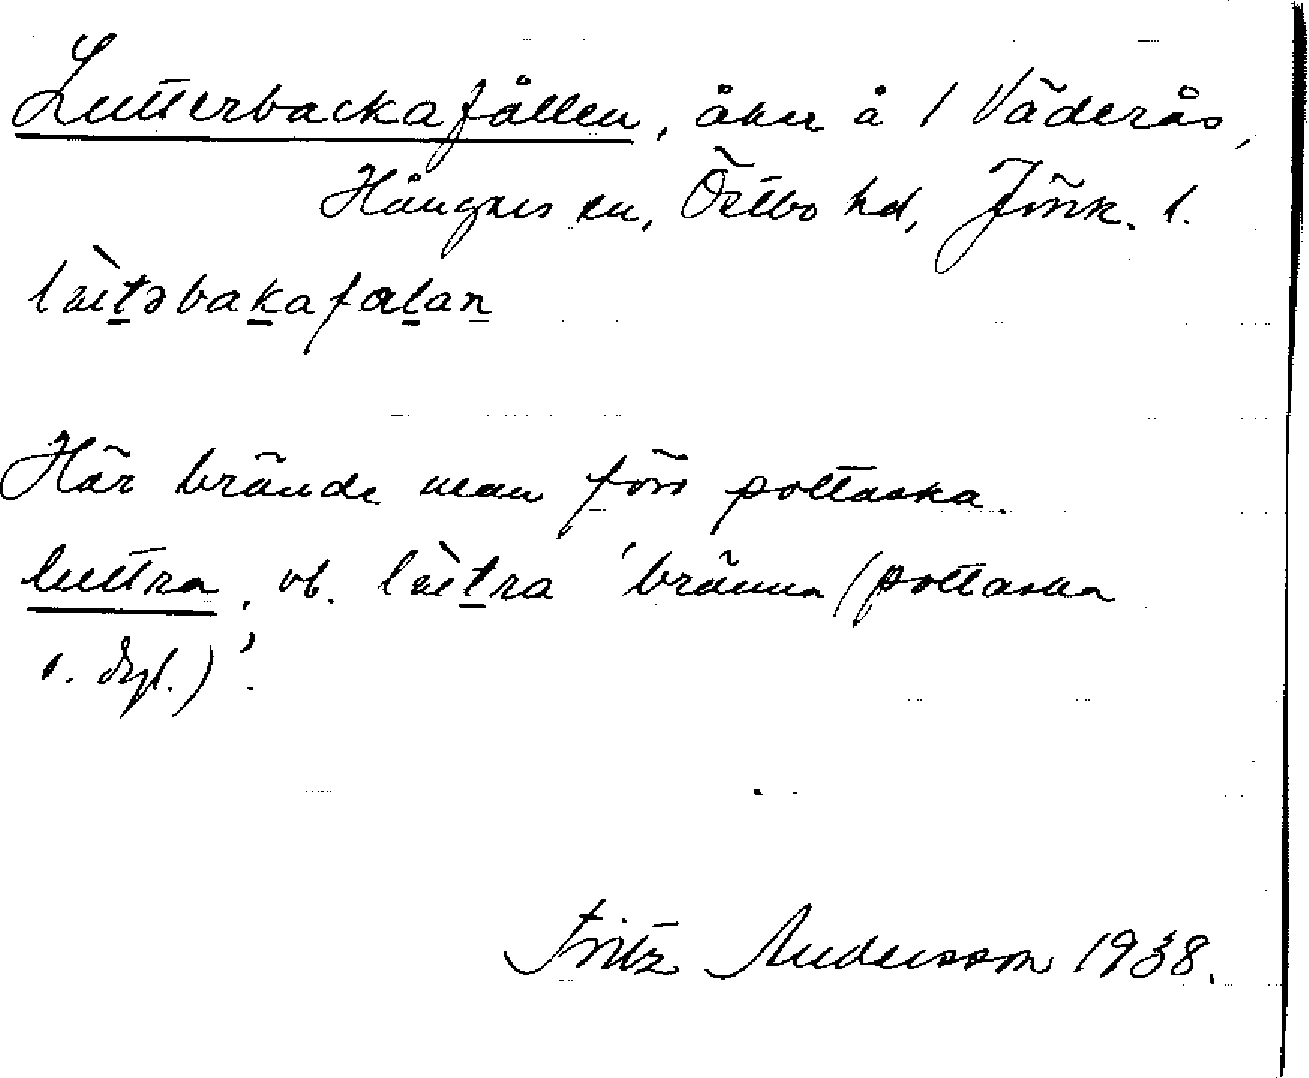 Lutterbackafållen, åker å 1 Väderås,
Hångers sn, Östbo hd, Jönk. l.
Här brände man förr pottaska.
luttra, vb. 'bränna (pottaska
o. dyl.)'.
Fritz Andersson 1938.